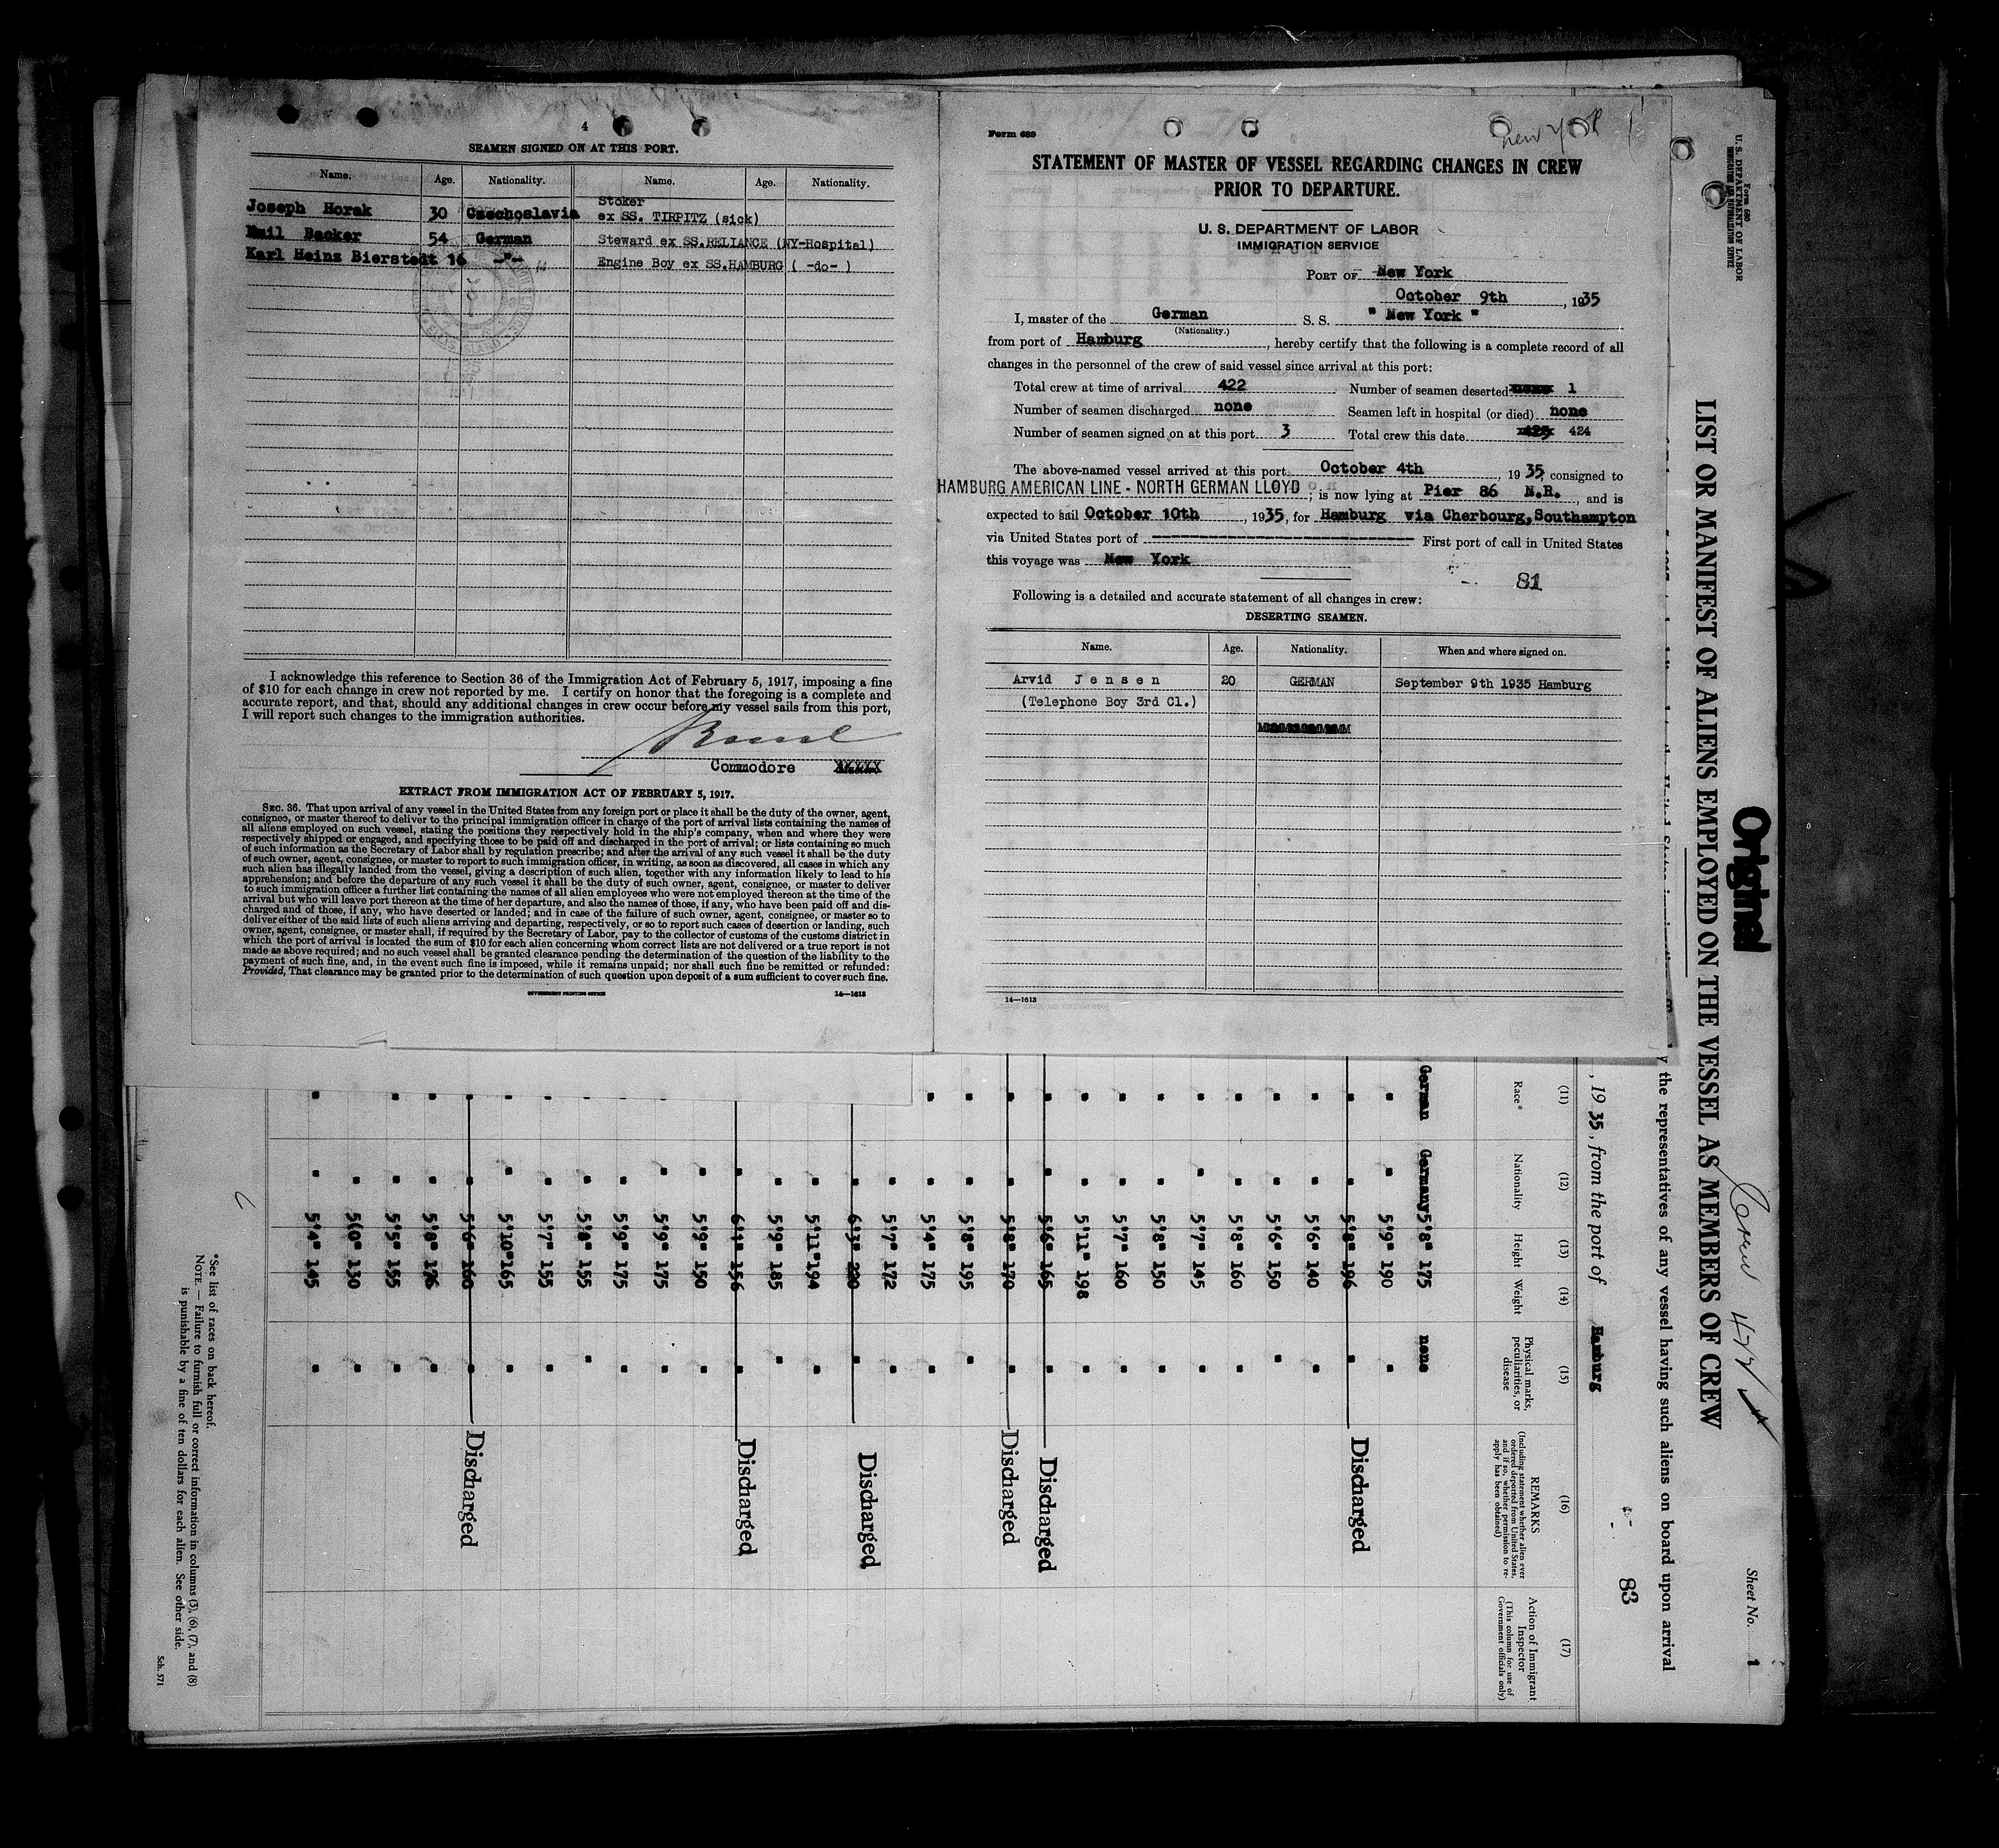 4
SEAMEN SIGNED ON AT THIS PORT.
Name. Age. Nationality. Name. Age. Nationality.
Joseph Horak 30 Czechoslavia Stoker
ex SS. TIRPITZ (sick)
Emil Becker 54 German Steward ex SS.RELIANCE (NY-Hospital)
Karl Heinz Bierstedt 16 -"- Engine Boy ex SS.HAMBURG ( -do- )
I acknowledge this reference to Section 36 of the Immigration Act of February 5, 1917, imposing a fine
of $10 for each change in crew not reported by me. I certify on honor that the foregoing is a complete and
accurate report, and that, should any additional changes in crew occur before my vessel sails from this port,
I will report such changes to the immigration authorities.
Commodore
EXTRACT FROM IMMIGRATION ACT OF FEBRUARY 5, 1917.
SEC. 36. That upon arrival of any vessel in the United States from any foreign port or place it shall be the duty of the owner, agent,
consignee, or master thereof to deliver to the principal immigration officer in charge of the port of arrival lists containing the names of
all aliens employed on such vessel, stating the positions they respectively hold in the ship's company, when and where they were
respectively shipped or engaged, and specifying those to be paid off and discharged in the port of arrival; or lists containing so much
of such information as the Secretary of Labor shall by regulation prescribe; and after the arrival of any such vessel it shall be the duty
of such owner, agent, consignee, or master to report to such immigration officer, in writing, as soon as discovered, all cases in which any
such alien has illegally landed from the vessel, giving a description of such alien, together with any information likely to lead to his
apprehension; and before the departure of any such vessel it shall be the duty of such owner, agent, consignee, or master to deliver
to such immigration officer a further list containing the names of all alien employees who were not employed thereon at the time of the
arrival but who will leave port thereon at the time of her departure, and also the names of those, if any, who have been paid off and dis-
charged and of those, if any, who have deserted or landed; and in case of the failure of such owner, agent, consignee, or master so to
deliver either of the said lists of such aliens arriving and departing, respectively, or so to report such cases of desertion or landing, such
owner, agent, consignee, or master shall, if required by the Secretary of Labor, pay to the collector of customs of the customs district in
which the port of arrival is located the sum of $10 for each alien concerning whom correct lists are not delivered or a true report is not
made as above required; and no such vessel shall be granted clearance pending the determination of the question of the liability to the
payment of such fine, and, in the event such fine is imposed, while it remains unpaid; nor shall such fine be remitted or refunded:
Provided, That clearance may be granted prior to the determination of such question upon deposit of a sum sufficient to cover such fine.
GOVERNMENT PRINTING OFFICE 14—1613
Form 689
new york
STATEMENT OF MASTER OF VESSEL REGARDING CHANGES IN CREW
PRIOR TO DEPARTURE.
U. S. DEPARTMENT OF LABOR
IMMIGRATION SERVICE
PORT OF New York
October 9th, 1935
I, master of the German S. S. " New York "
(Nationality.)
from port of Hamburg, hereby certify that the following is a complete record of all
changes in the personnel of the crew of said vessel since arrival at this port:
Total crew at time of arrival 422 Number of seamen deserted 1
Number of seamen discharged none Seamen left in hospital (or died) none
Number of seamen signed on at this port 3 Total crew this date 425 424
The above-named vessel arrived at this port October 4th, 1935, consigned to
HAMBURG AMERICAN LINE - NORTH GERMAN LLOYD; is now lying at Pier 86 N.R., and is
expected to sail October 10th, 1935, for Hamburg via Cherbourg, Southampton
via United States port of ---------- First port of call in United States
this voyage was New York
81
Following is a detailed and accurate statement of all changes in crew:
DESERTING SEAMEN.
Name. Age. Nationality. When and where signed on.
Arvid Jensen 20 GERMAN September 9th 1935 Hamburg
(Telephone Boy 3rd Cl.)
14—1613
Form 680
U. S. DEPARTMENT OF LABOR
IMMIGRATION AND NATURALIZATION SERVICE
Original
LIST OR MANIFEST OF ALIENS EMPLOYED ON THE VESSEL AS MEMBERS OF CREW
Sheet No. 1
the representatives of any vessel having such aliens on board upon arrival
, 1935, from the port of Hamburg
83
(11) (12) (13) (14) (15) (16) (17)
Race* Nationality Height Weight Physical marks, peculiarities, or disease
REMARKS (Including statement whether alien ever ordered deported from United States, and if so, whether permission to re-apply has been obtained)
Action of Immigrant Inspector (This column for use of Government officials only)
German Germany 5'8" 175 none
" " 5'9" 190 "
" " 5'8" 196 " Discharged
" " 5'6" 140 "
" " 5'6" 150 "
" " 5'8" 160 "
" " 5'7" 145 "
" " 5'8" 150 "
" " 5'7" 160 "
" " 5'11" 198 "
" " 5'6" 165 " Discharged
" " 5'8" 170 " Discharged
" " 5'8" 195 "
" " 5'4" 175 "
" 5'7" 172 "
" 6'3" 220 " Discharged
" 5'11" 194 "
" 5'9" 185 "
" 6'1" 156 " Discharged
" 5'9" 150 "
" 5'9" 175 "
" 5'9" 175 "
" 5'8" 155 "
" 5'7" 155 "
" 5'10" 165 "
" " 5'6" 160 " Discharged
" " 5'8" 176 "
" " 5'5" 155 "
" 5'0" 130 "
" " 5'4" 145 "
*See list of races on back hereof.
NOTE.—Failure to furnish full or correct information in columns (3), (6), (7), and (8)
is punishable by a fine of ten dollars for each alien. See other side.
Sch. 571